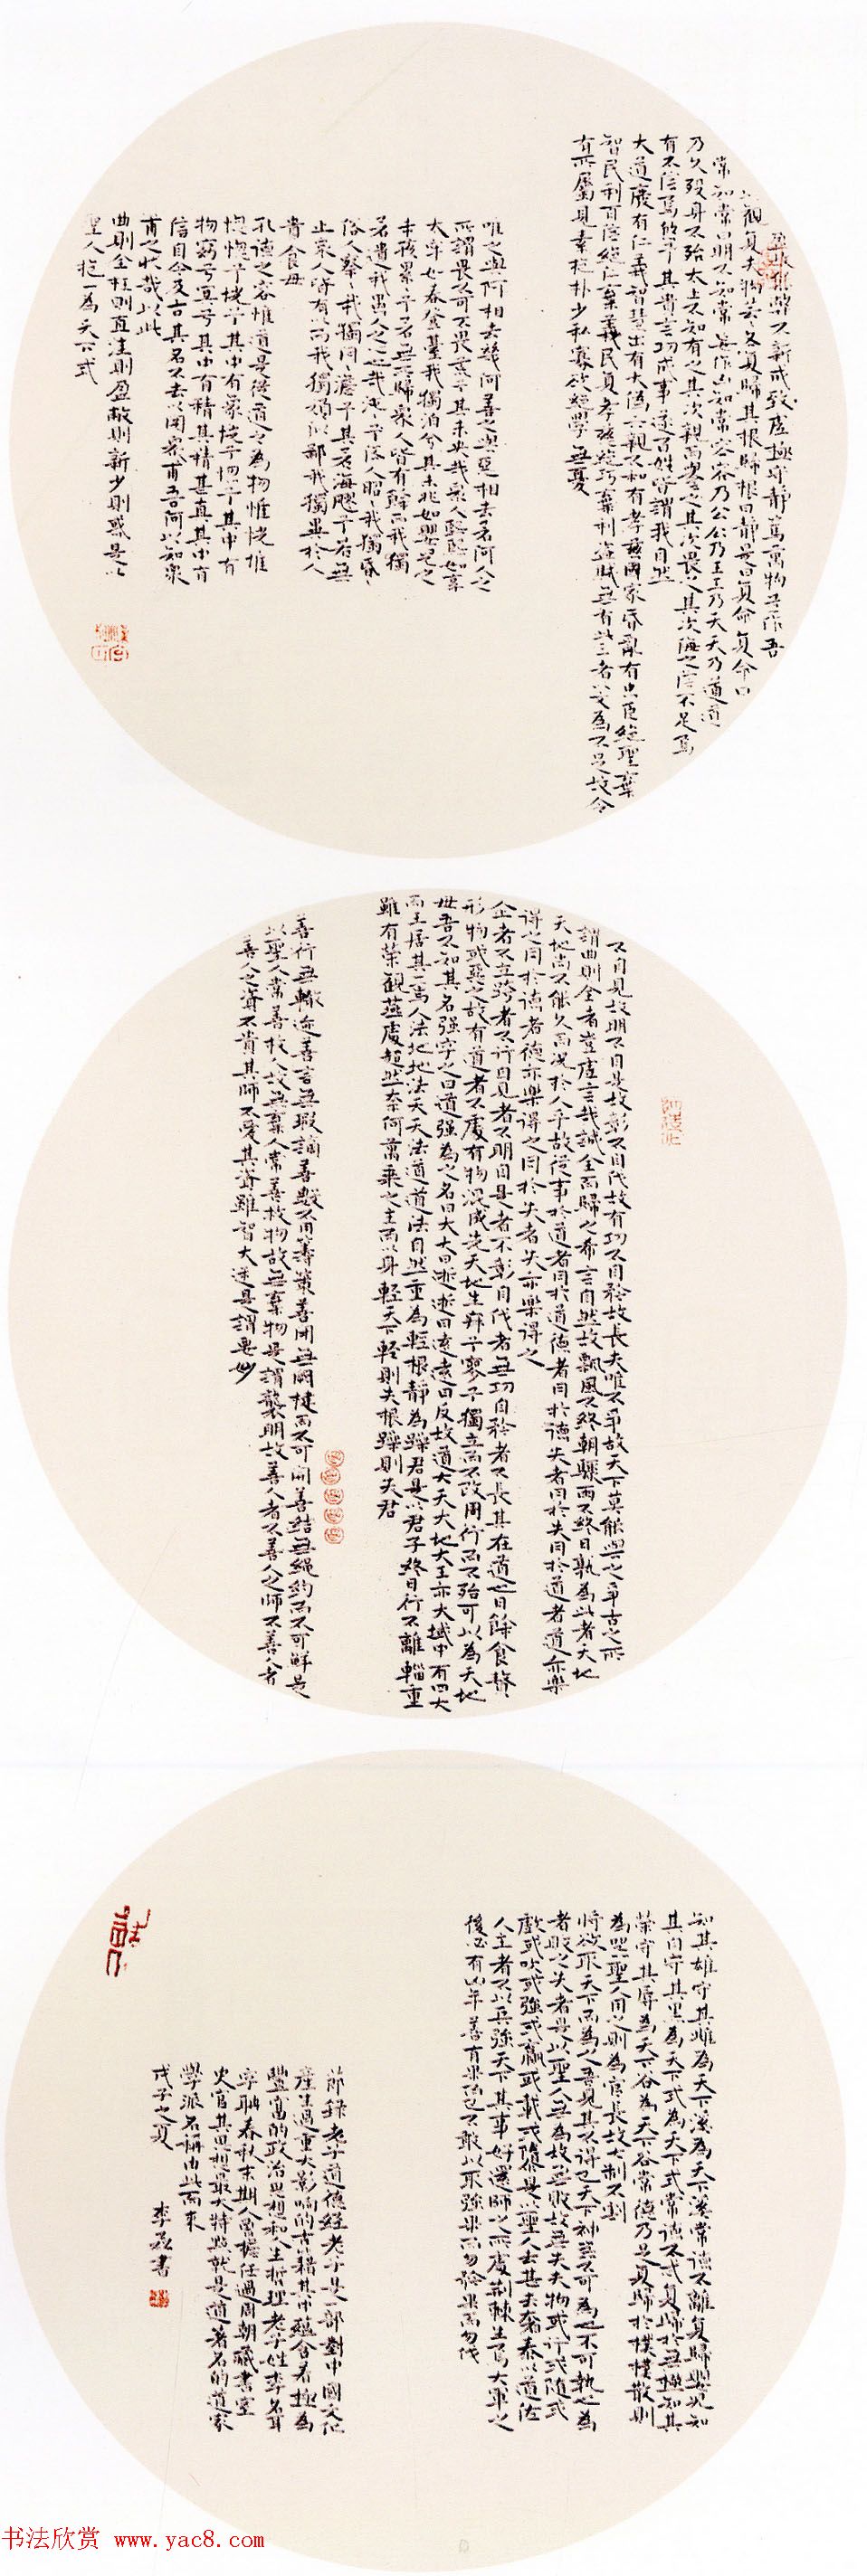 盈故能弊不新成致虛極守靜篤萬物并作吾
以觀复夫物芸〻各复歸其根歸根曰靜是曰复命复命曰
常知常曰明不知常妄作凶知常容容乃公公乃王王乃天天乃道道
乃久殁身不殆太上不知有之其次親而譽之其次畏之其次侮之信不足焉
有不信焉悠兮其貴言功成事遂百姓皆謂我自然
大道廢有仁義智慧出有大偽六親不和有孝慈國家昏亂有忠臣絶聖棄
智民利百倍絶仁棄義民复孝慈絶巧棄利盜賊无有此三者以文為不足故令
有所屬見素抱朴少私寡欲絶學無憂
唯之與阿相去幾何善之與惡相去若何人之
所謂畏不可不畏荒兮其未央哉衆人熙熙如享
太牢如春登臺我獨泊兮其未兆如嬰兒之
未孩累兮若無所歸衆人皆有餘而我獨
若遺我愚人之心也哉沌〻兮俗人昭〻我獨昏〻
俗人察〻我獨悶〻澹兮其若海飂兮若無
止衆人皆有以而我獨頑似鄙我獨異於人
貴食母
孔德之容惟道是從道之為物惟恍惟
惚惚兮恍兮其中有象恍兮惚兮其中有
物窈兮冥兮其中有精其精甚真其中有
信自今及古其名不去以閱衆甫吾何以知衆
甫之状哉以此
曲則全枉則直洼則盈敝則新少則惑是以
聖人抱一為天下式
不自見故明不自是故彰不自伐故有功不自矜故長夫唯不爭故天下莫能與之爭古之所
謂曲則全者豈虛言哉誠全而歸之希言自然故飄風不終朝驟雨不終日孰為此者天地
天地尚不能久而况於人乎故從事於道者同於道德者同於德失者同於失同於道者道亦樂
得之同於德者德亦樂得之同於失者失亦樂得之
企者不立跨者不行自見者不明自是者不彰自伐者無功自矜者不長其在道也曰餘食贅
形物或惡之故有道者不處有物混成先天地生寂兮寥兮獨立而不改周行而不殆可以為天地
母吾不知其名强字之曰道强為之名曰大大曰逝逝曰遠遠曰反故道大天大地大王亦大域中有四大
而王居其一焉人法地地法天天法道道法自然重為輕根靜為躁君是以君子終日行不離輜重
雖有榮觀燕處超然奈何萬乘之主而以身輕天下輕則失根躁則失君
善行無轍迹善言無瑕謫善數不用籌策善閉無關楗而不可開善結無繩約而不可解是
以聖人常善救人故無棄人常善救物故無棄物是謂襲明故善人者不善人之師不善人者
善人之資不貴其師不愛其資雖智大迷是謂要妙
知其雄守其雌為天下溪為天下溪常德不離复歸嬰兒知
其白守其黑為天下式為天下式常德不忒复歸於無極知其
榮守其辱為天下谷為天下谷常德乃足复歸於樸樸散則
為器聖人用之則為官長故大制不割
將欲取天下而為之吾見其不得已天下神器不可為也不可執也為
者敗之失者是以聖人無為故無敗故無失夫物或行或隨或
歔或吹或强或羸或載或隳是以聖人去甚去奢去泰以道佐
人主者不以兵强天下其事好還師之所處荆棘生焉大軍之
後必有凶年善有果而已不敢以取强果而勿矜果而勿伐
節錄老子道德經老子是一部對中國文化
產生過重大影响的古籍其中蘊含着極為
豐富的政治思想和人生哲理老子姓李名耳
字聃春秋末期人曾擔任過周朝藏書室
史官其思想最大特點就是道著名的道家
學派名稱由此而來
戊子之夏
書
书法欣赏 www.yac8.com